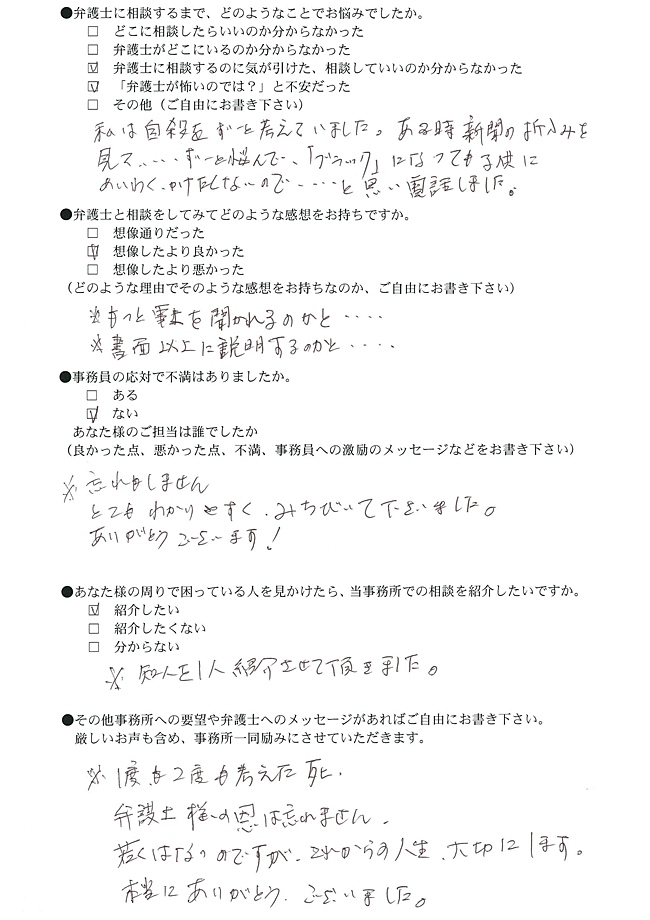 ●弁護士に相談するまで、どのようなことでお悩みでしたか。
□ どこに相談したらいいのか分からなかった
□ 弁護士がどこにいるのか分からなかった
☑ 弁護士に相談するのに気が引けた、相談していいのか分からなかった
☑ 「弁護士が怖いのでは？」と不安だった
□ その他（ご自由にお書き下さい）
私は自殺をずーと考えていました。ある時新聞の折込みを
見て、・・・・ずーと悩んで・、「ブラック」になっても子供に
めいわく、かけたくないので・・・・と思い電話しました。
●弁護士と相談をしてみてどのような感想をお持ちですか。
□ 想像通りだった
☑ 想像したより良かった
□ 想像したより悪かった
（どのような理由でそのような感想をお持ちなのか、ご自由にお書き下さい）
※もっと を聞かれるのかと・・・・
※書面以上に説明するのかと・・・・
●事務員の応対で不満はありましたか。
□ ある
☑ ない
あなた様のご担当は誰でしたか
（良かった点、悪かった点、不満、事務員への激励のメッセージなどをお書き下さい）
※忘れもしません
とてもわかりやすく、みちびいて下さいました。
ありがとうございます！
●あなた様の周りで困っている人を見かけたら、当事務所での相談を紹介したいですか。
☑ 紹介したい
□ 紹介したくない
□ 分からない
※知人を1人紹介させて頂きました。
●その他事務所への要望や弁護士へのメッセージがあればご自由にお書き下さい。
厳しいお声も含め、事務所一同励みにさせていただきます。
※1度も2度も考えた死、
弁護士様への恩は忘れません、
若くはないのですが、これからの人生、大切にします。
本当にありがとう、ございました。